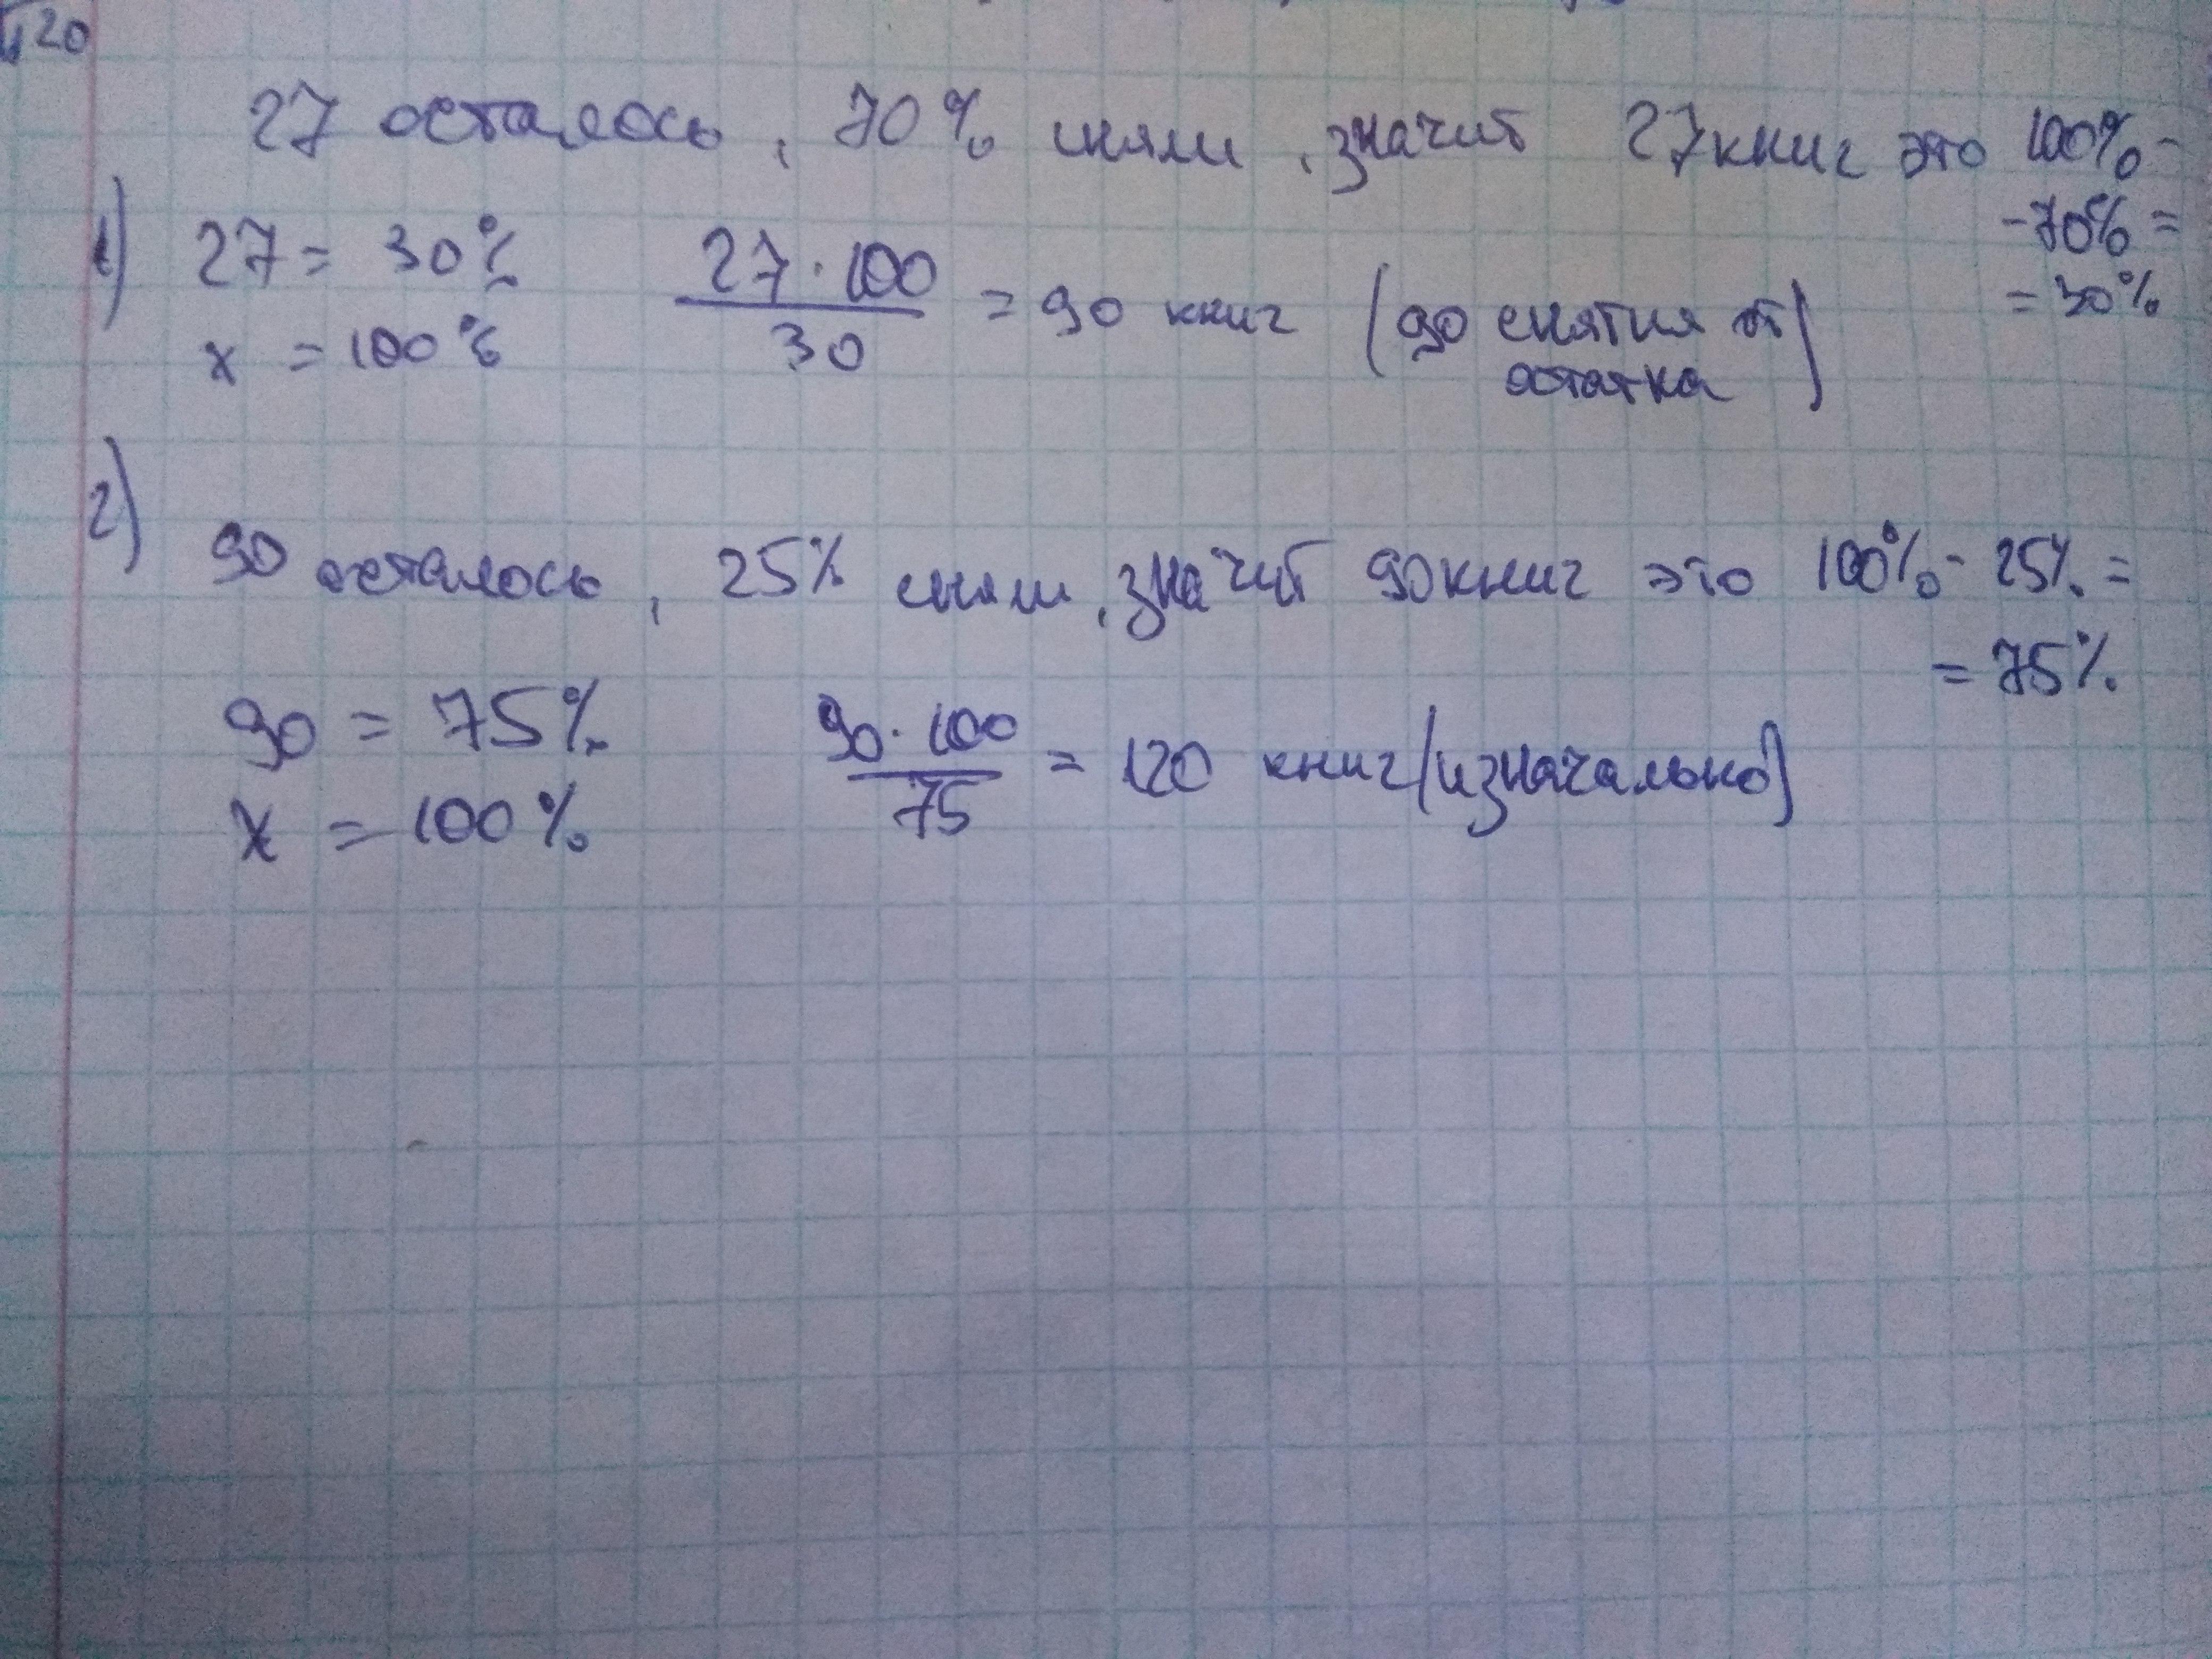 120
27 осталось, 70% сняли, значит 27 книг это 100% -
- 70% =
= 30%
1) 27 = 30% 27 · 100 / 30 = 90 книг (90 снятия от остатка)
x = 100%
2) 90 осталось, 25% сняли, значит 90 книг это 100% - 25% =
= 75%
90 = 75% 90 · 100 / 75 = 120 книг (изначально)
x = 100%